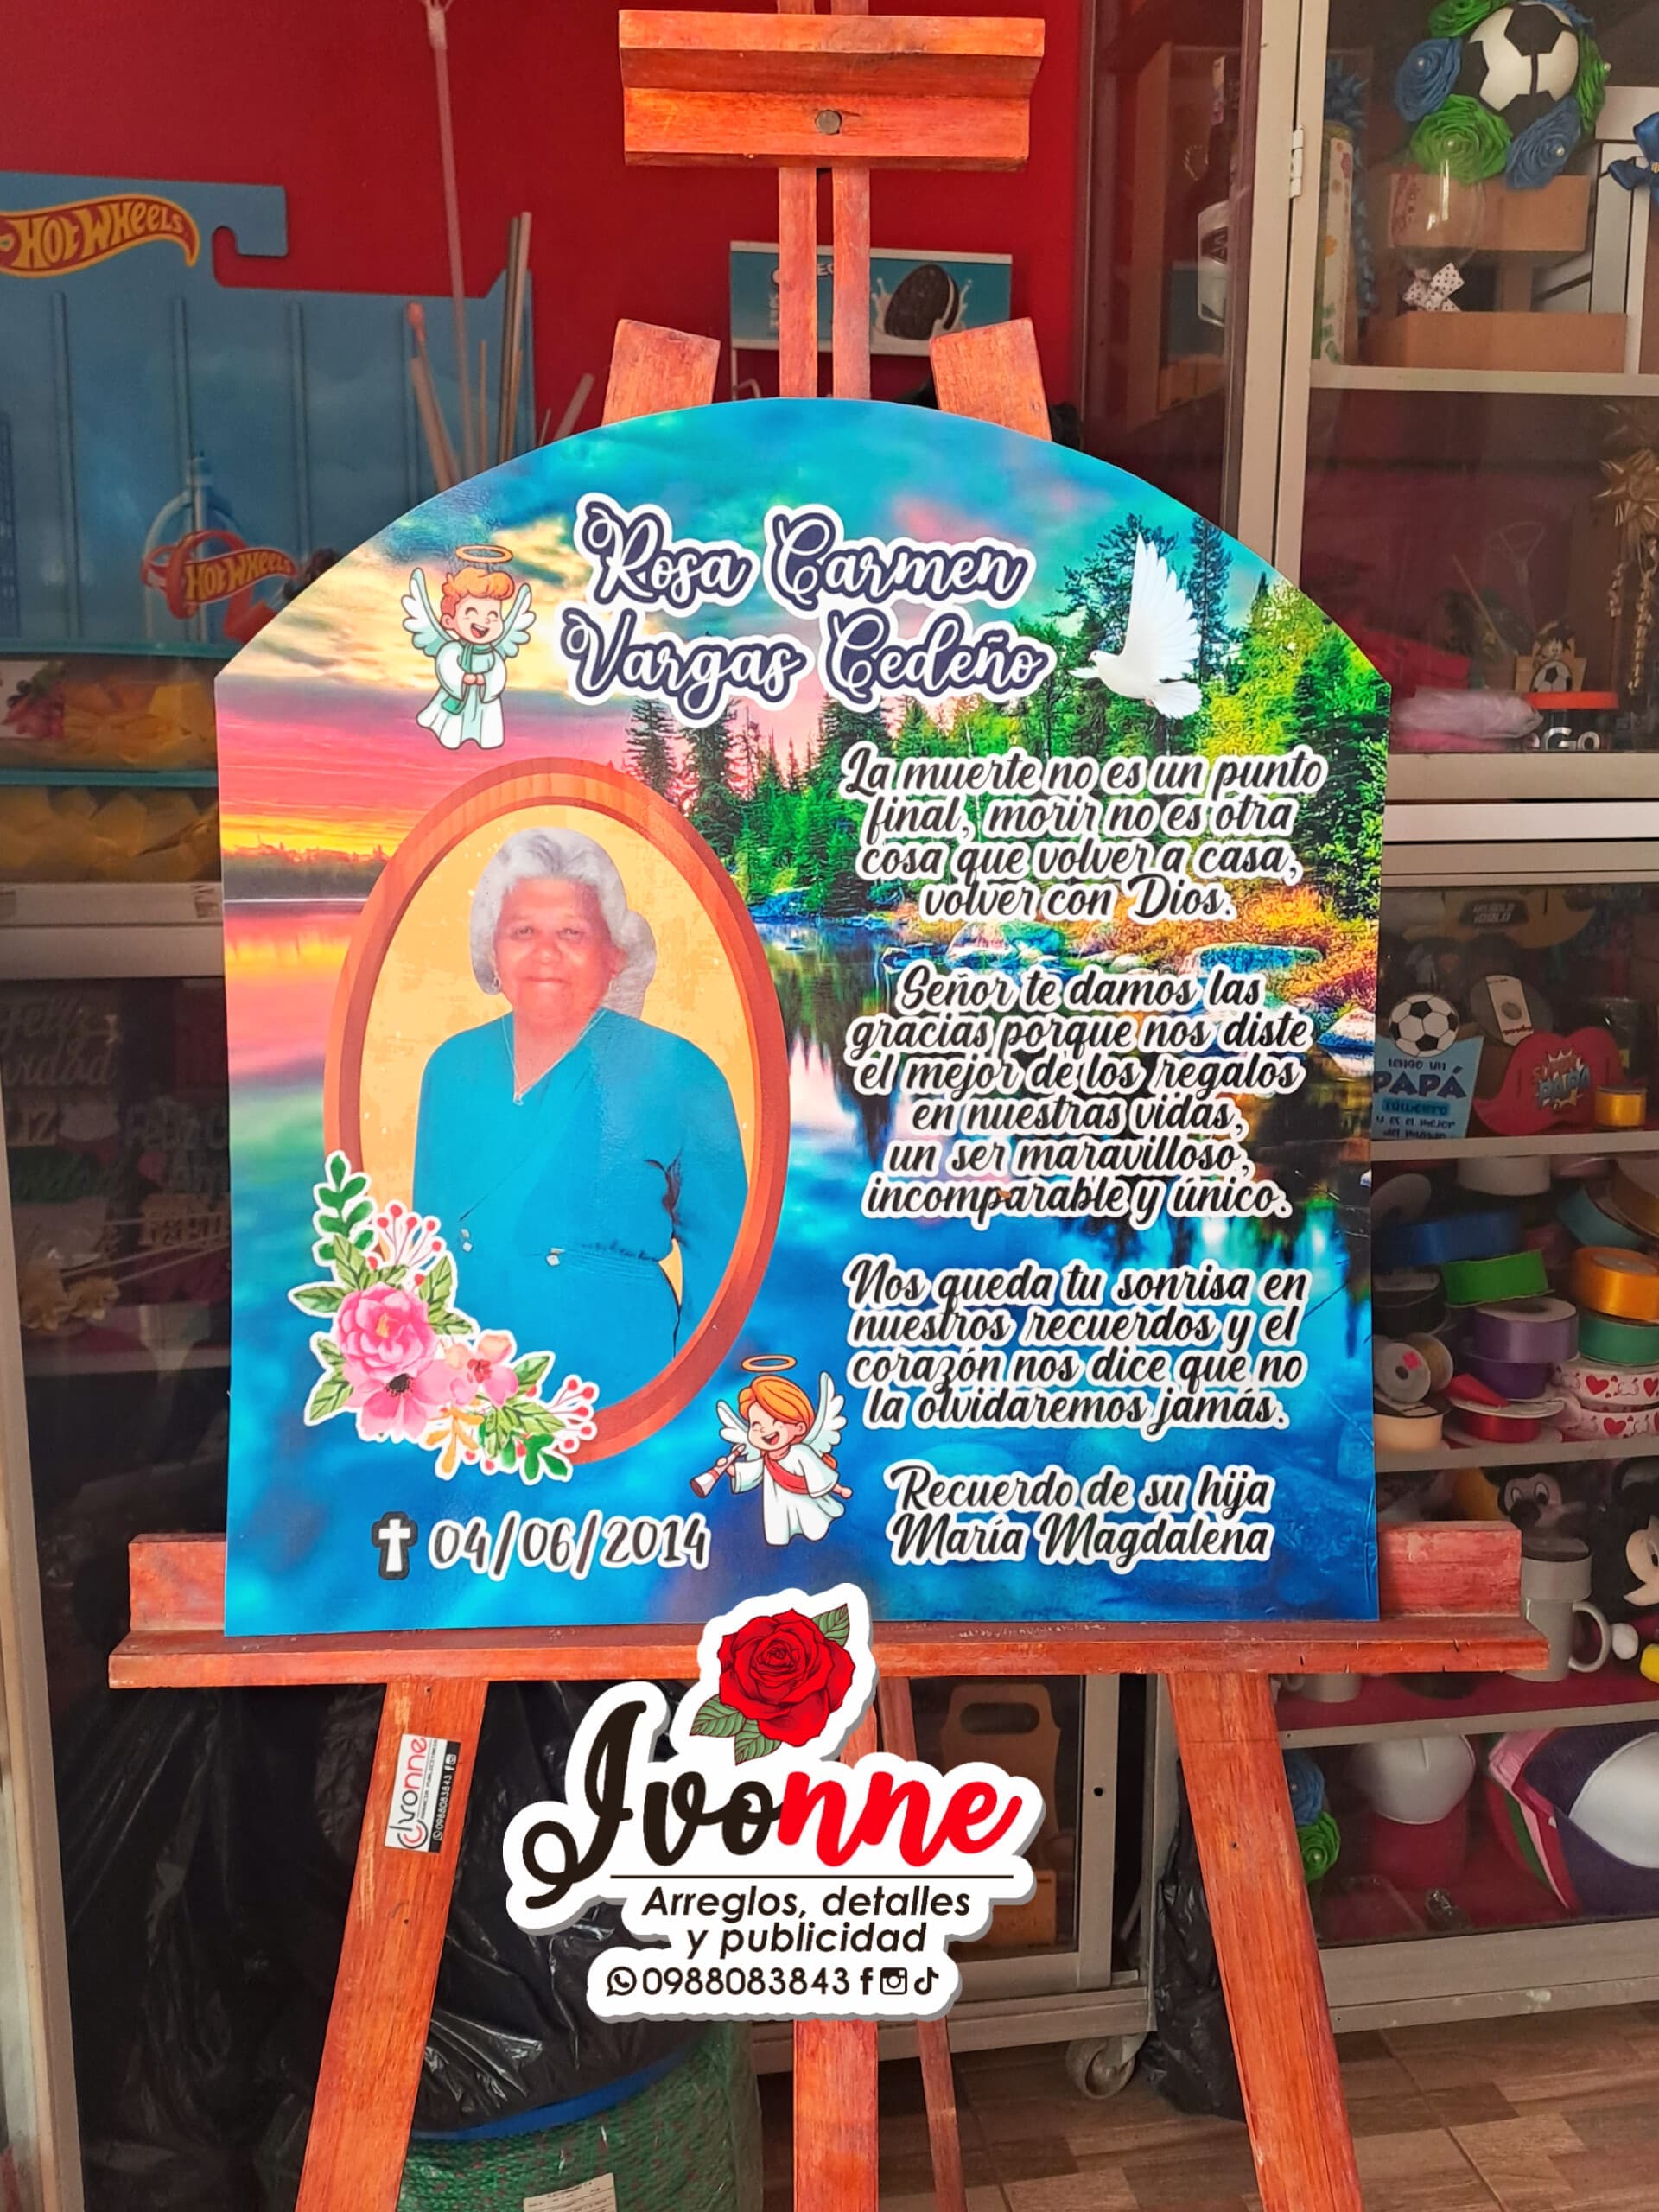 HOT WHEELS
HOT WHEELS
Rosa Carmen
Vargas Cedeño
La muerte no es un punto
final, morir no es otra
cosa que volver a casa,
volver con Dios.
Señor te damos las
gracias porque nos diste
el mejor de los regalos
en nuestras vidas,
un ser maravilloso,
incomparable y único.
Nos queda tu sonrisa en
nuestros recuerdos y el
corazón nos dice que no
la olvidaremos jamás.
Recuerdo de su hija
María Magdalena
04/06/2014
PAPÁ
Ivonne
Arreglos, detalles
y publicidad
0988083843
Ivonne
0988083843